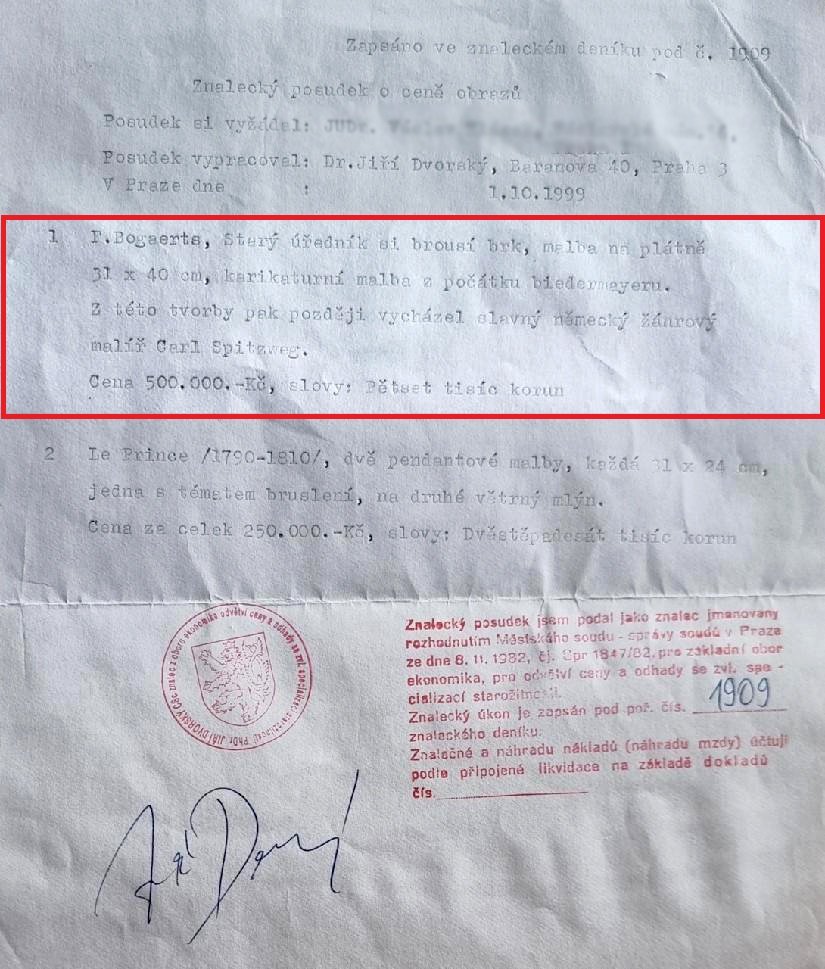 Zapsáno ve znaleckém deníku pod č. 1909
Znalecký posudek o ceně obrazů
Posudek si vyžádal: JUDr.
Posudek vypracoval: Dr.Jiří Dvorský, Baranova 40, Praha 3
V Praze dne : 1.10.1999
1 F.Bogaerts, Starý úředník si brousí brk, malba na plátně
31 x 40 cm, karikaturní malba z počátku biedermeyeru.
Z této tvorby pak později vycházel slavný německý žánrový
malíř Carl Spitzweg.
Cena 500.000.-Kč, slovy: Pětset tisíc korun
2 Le Prince /1790-1810/, dvě pendantové malby, každá 31 x 24 cm,
jedna s tématem bruslení, na druhé větrný mlýn.
Cena za celek 250.000.-Kč, slovy: Dvěstěpadesát tisíc korun
Znalecký posudek jsem podal jako znalec jmenovaný
rozhodnutím Městského soudu - správy soudů v Praze
ze dne 8. 11. 1982, čj. Spr 1847/82, pro základní obor
ekonomika, pro odvětví ceny a odhady se zvl. spe-
cializací starožitností.
Znalecký úkon je zapsán pod poř. čís. 1909
znaleckého deníku.
Znalečné a náhradu nákladů (náhradu mzdy) účtuji
podle připojené likvidace na základě dokladů
čís.
PhDr. JIŘÍ DVORSKÝ CSc